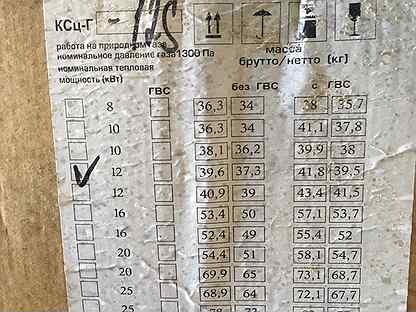 КСц-Г - 12S
работа на природном газе
номинальное давление газа 1300 Па
номинальная тепловая
мощность (кВт)
масса
брутто/нетто (кг)
ГВС без ГВС с ГВС
8 36,3 34 38 35,7
10 36,3 34 41,1 37,8
10 38,1 36,2 39,9 38
12 39,6 37,3 41,8 39,5
12 40,9 39 43,4 41,5
16 53,4 50 57,1 53,7
16 52,4 49 55,4 52
20 54,4 51 58,1 54,7
20 69,9 65 73,1 68,7
25 68,9 64 72,1 67,7
25 78 73